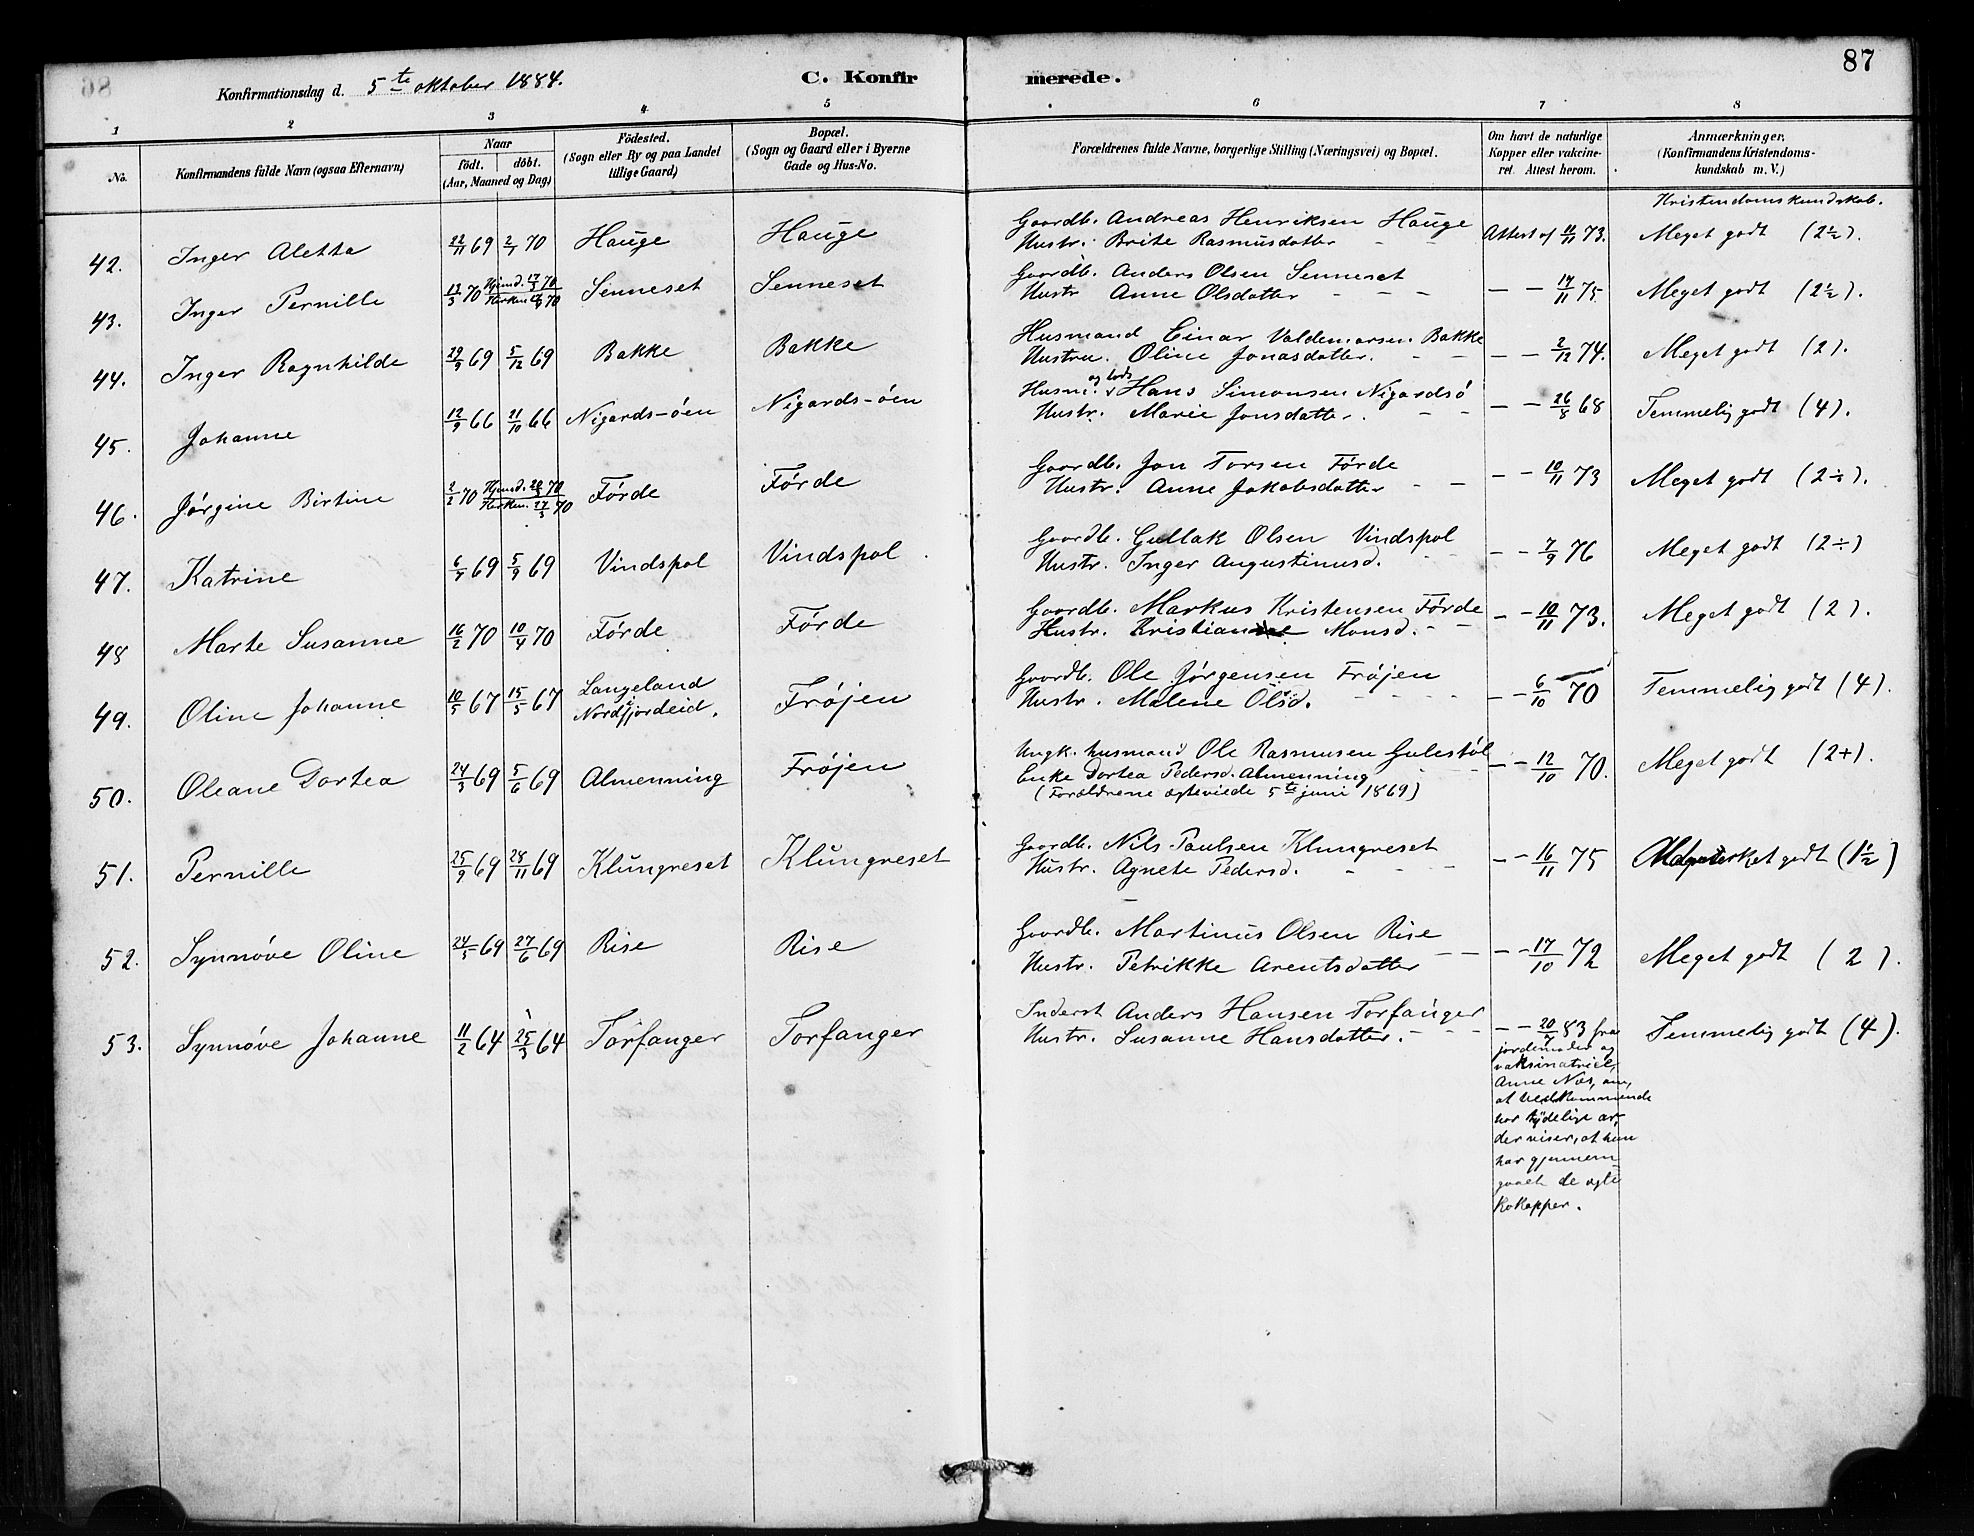 87
Konfirmationsdag d. 5te oktober 1884.
C. Konfirmerede.
1 2 3 4 5 6 7 8
No.
Konfirmandens fulde Navn (ogsaa Efternavn)
Naar
födt. döbt.
(Aar, Maaned og Dag)
Födested.
(Sogn eller By og paa Landet
tillige Gaard)
Bopæl.
(Sogn og Gaard eller i Byerne
Gade og Hus-No.
Forældrenes fulde Navne, borgerlige Stilling (Næringsvei) og Bopæl.
Om havt de naturlige
Kopper eller vakcine-
ret. Attest herom.
Anmærkninger.
(Konfirmandens Kristendoms-
kundskab m. V.)
Kristendomskundskab.
42. Inger Aletta 22/11 69 2/1 70 Hauge Hauge Gaardb. Andreas Henriksen Hauge Attest af 11/11 73. Meget godt (2½).
Hustr. Brite Rasmusdatter - -
43. Inger Pernille 13/3 70 Hjemd. 17/3 70 Senneset Senneset Gaardb. Anders Olsen Senneset - - 17/11 75 Meget godt (2½).
Hustr Anne Olsdatter - - -
44. Inger Ragnhilde 29/9 69 5/12 69 Bakke Bakke Husmand Einar Valdemarsen Bakke - - 2/12 74. Meget godt (2).
Hustru. Oline Jonasdatter. - -
45. Johanne 12/9 66 21/10 66 Nigards-öen Nigards-öen Husm. og lods Hans Simonsen Nigardsö - - 26/8 68 Temmelig godt (4).
Hustr. Marie Jonsdatter. - -
46. Jørgine Birtine 2/2 70 Førde Førde Gaardb. Jon Torsen Førde - - 10/11 73 Meget godt (2÷).
Hustr. Anne Jakobsdatter - -
47. Katrine 6/7 69 5/9 69 Vindspol Vindspol Gaardb. Gullak Olsen Vindspol - - 7/9 76 Meget godt (2÷)
Hustr. Inger Augustinusd.
48 Marte Susanne 16/2 70 10/4 70 Førde Førde Gaardb. Markus Kristensen Førde - - 10/11 73. Meget godt (2).
Hustr. Monsd. - -
49. Oline Johanne 10/5 67 15/5 67 Langeland Frøjen Gaardb. Ole Jørgensen Frøjen - - 6/10 70 Temmelig godt (4).
Nordfjordeid. Hustr. Malene Olsd. - - - -
50. Oleane Dortea 24/3 69 5/6 69 Almenning Frøjen Ungk. husmand Ole Rasmusen Gulestøl - - 12/10 70. Meget godt (2+).
Enke Dortea Pedersd. Almenning
(Forældrene ægteviede 5te juni 1869)
51. Pernille 25/9 69 28/11 69 Klungreset Klungreset Gaardb. Nils Paulsen Klungreset - - 16/11 75 godt (1½)
Hustr. Agnete Pedersd. - - -
52. Synnøve Oline 24/5 69 27/6 69 Rise Rise Gaardb. Martinus Olsen Rise - - 17/10 72 Meget godt (2).
Hustr. Petrikke Arentsdatter - -
53. Synnøve Johanne 11/2 64 25/3 64 Torfanger Torfanger Inderst Anders Hansen Torfanger - - 20/7 83 fra Temmelig godt (4).
Hustr. Susanne Hansdatter. - - -
jordemoder og
vaksinatrice,
Anne Næs, om,
at vedkommende
har tydelige ar,
der viser, at hun
har gjennem
gaaet de ægte
kokopper.